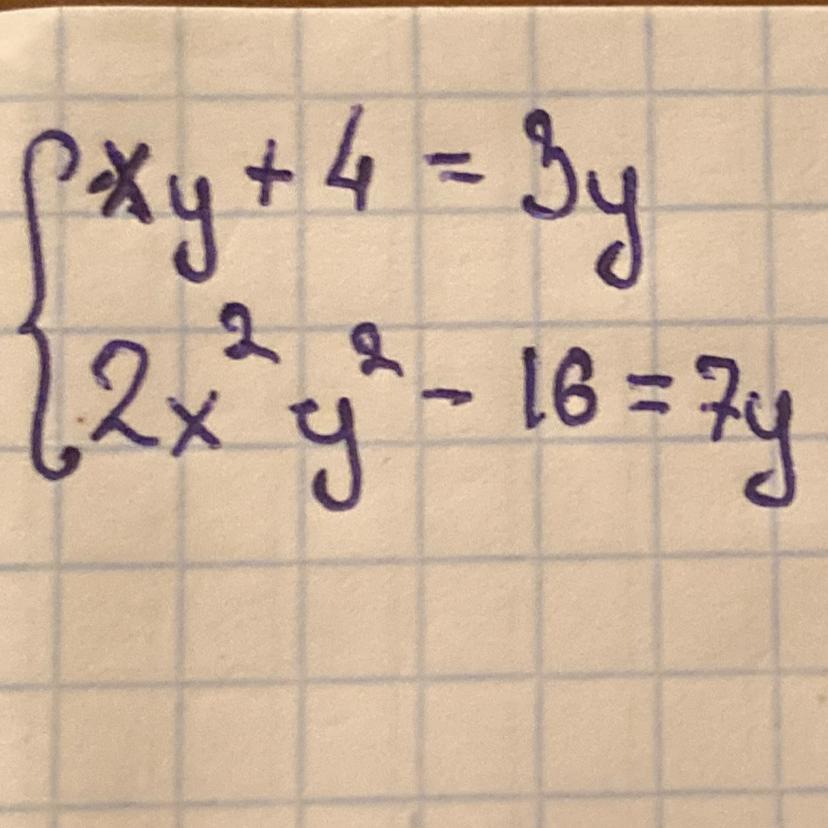 xy + 4 = 3y
2x² y² - 16 = 7y